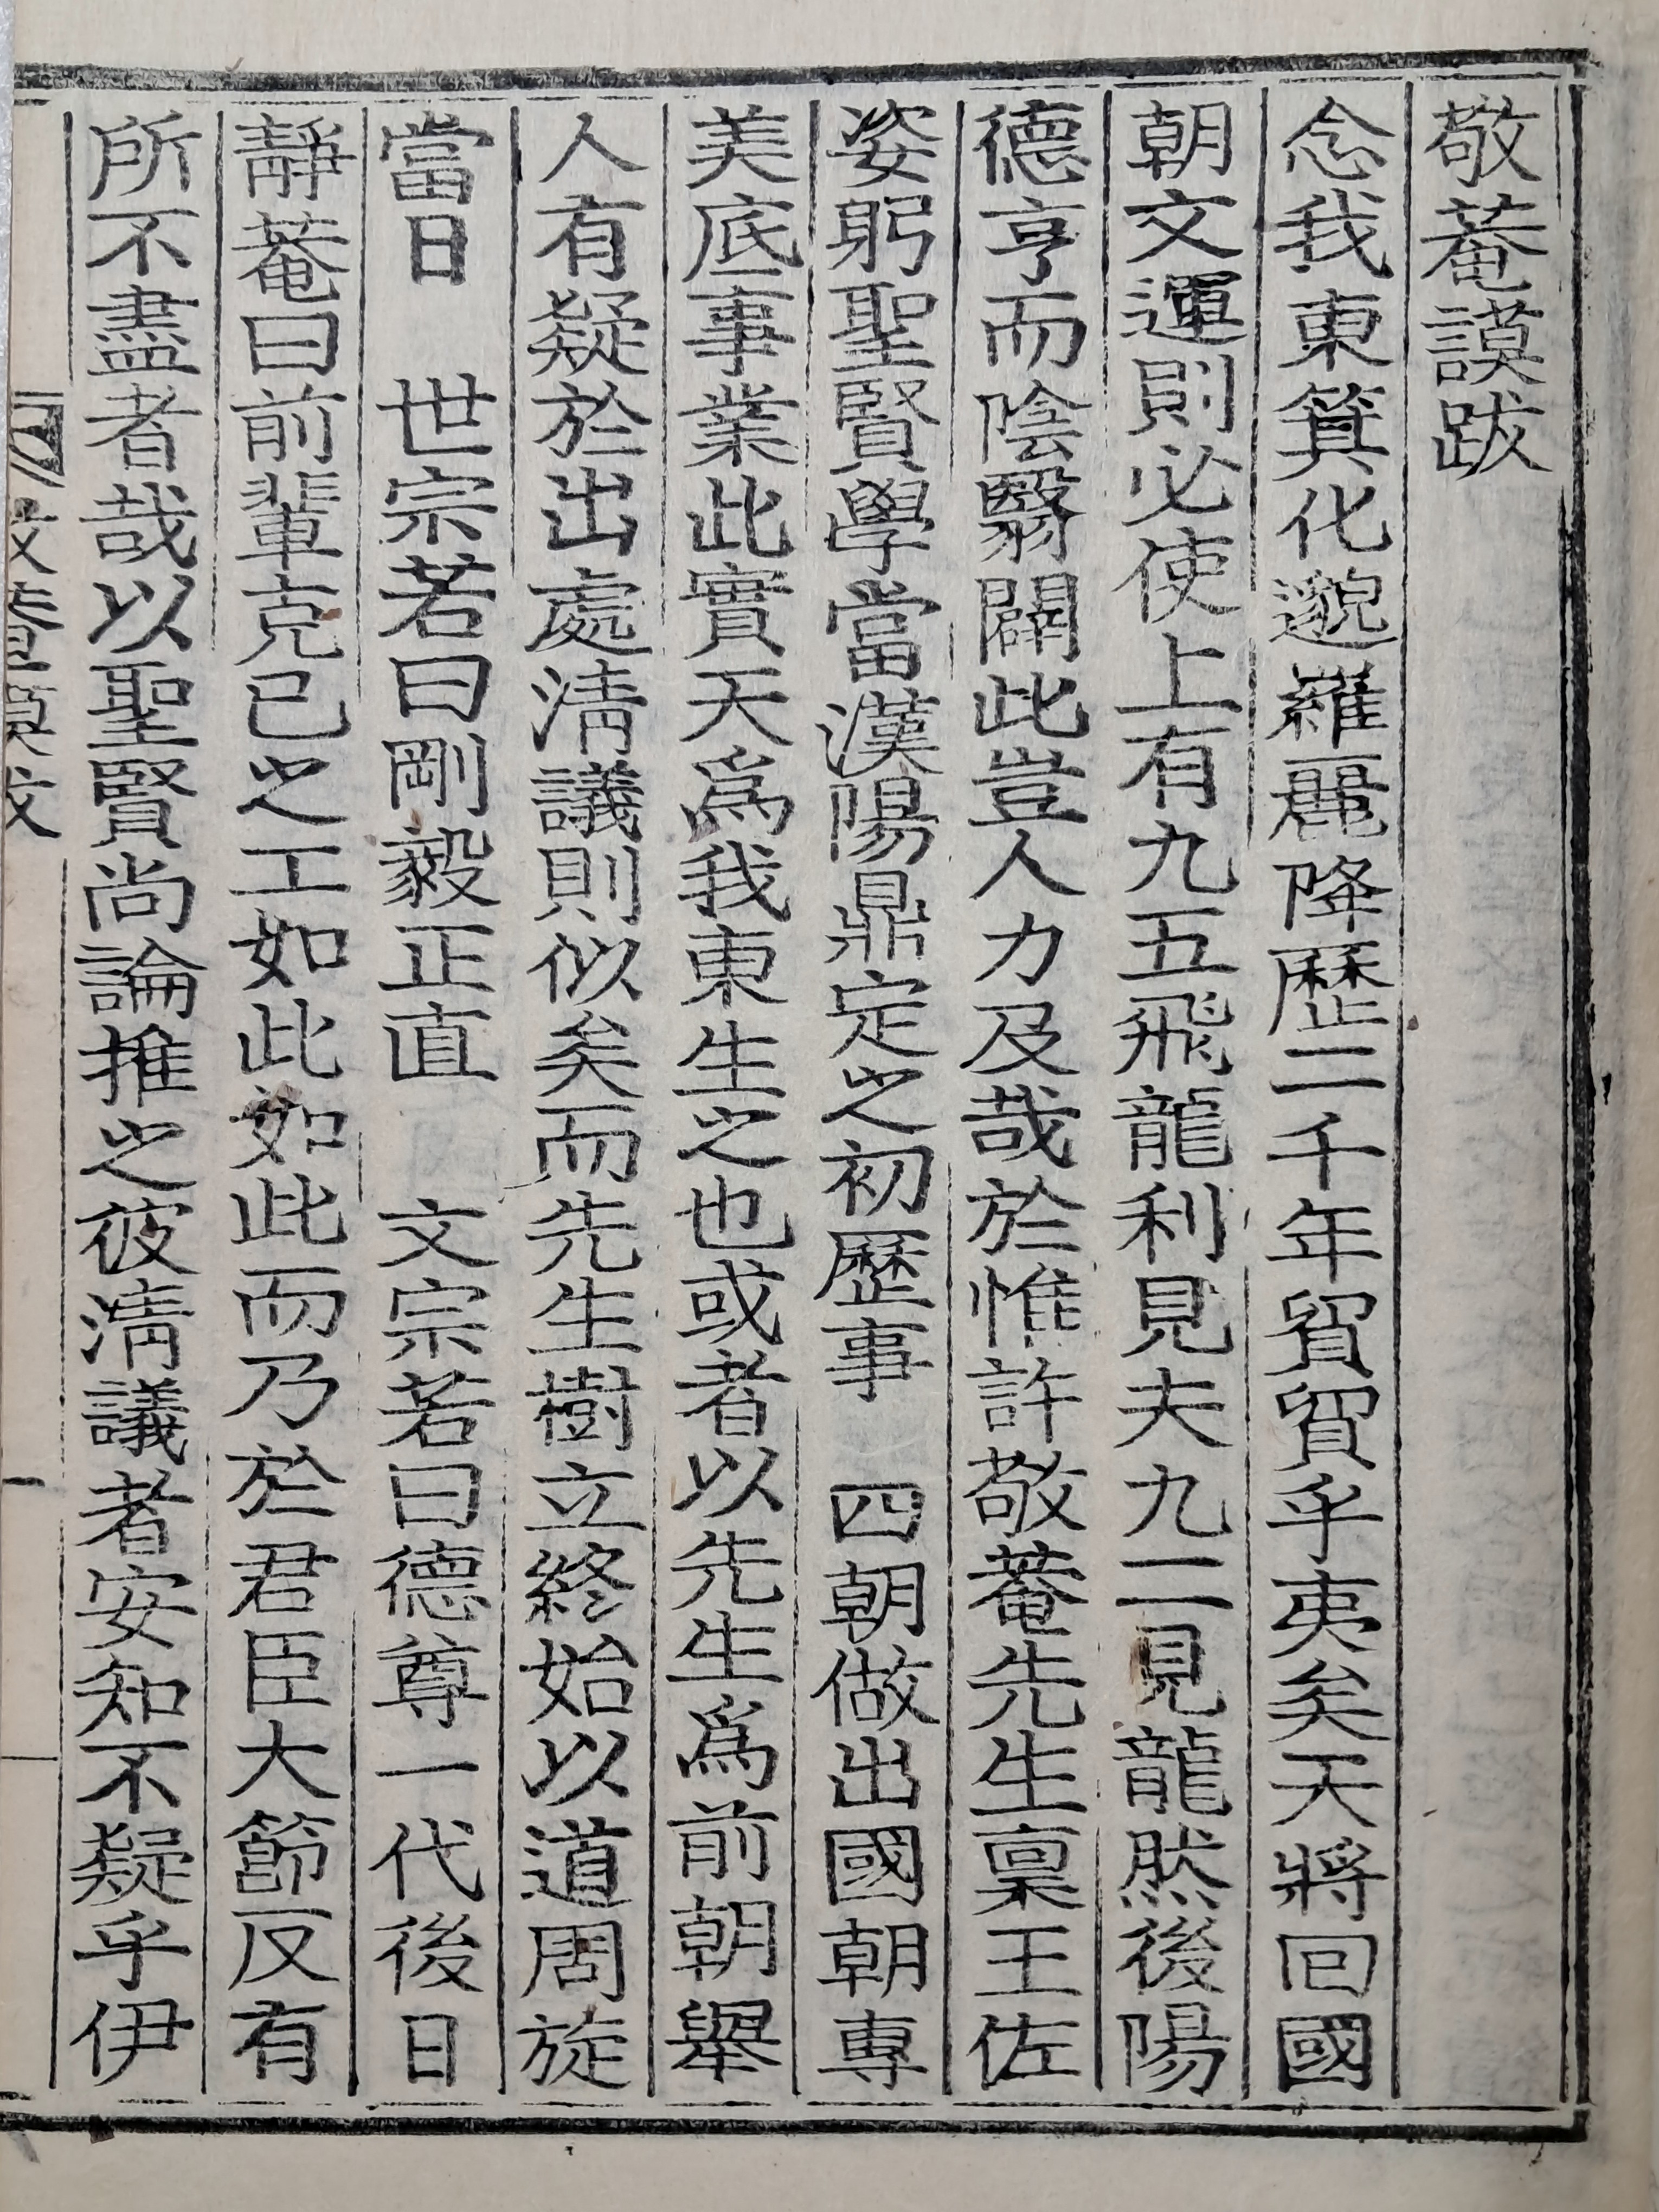 敬菴謨跋
念我東箕化邈羅麗降歷二千年貿貿乎夷矣天將回國
朝文運則必使上有九五飛龍利見夫九二見龍然後陽
德亨而陰翳闢此豈人力及哉於惟許敬菴先生稟王佐
姿躬聖賢學當漢陽鼎定之初歷事　四朝做出國朝專
美底事業此實天爲我東生之也或者以先生爲前朝舉
人有疑於出處淸議則似矣而先生樹立終始以道周旋
當日　世宗若曰剛毅正直　文宗若曰德尊一代後日
靜菴曰前輩克己之工如此如此而乃於君臣大節反有
所不盡者哉以聖賢尙論推之彼淸議者安知不疑乎伊